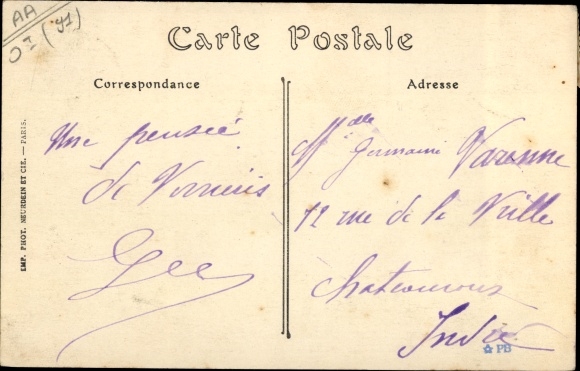 AA
OI (91)
Carte Postale
Correspondance
Adresse
Une pensée
de
Gee
Mdelle Germaine Varenne
12 rue de la Ville
Chateauroux
Indre
PB
EMP. PHOT. NEURDEIN ET CIE. — PARIS.